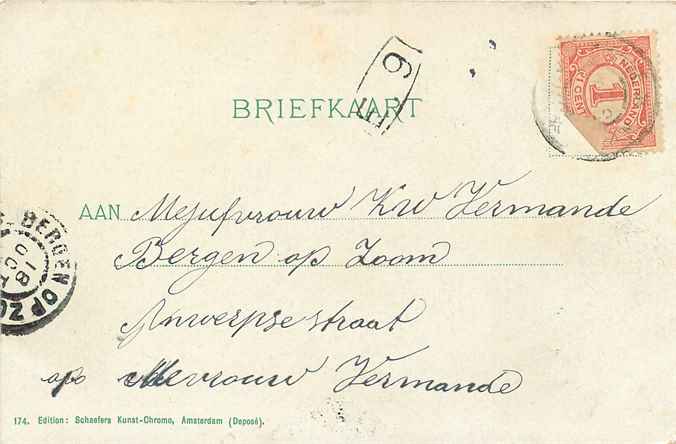 NEDERLAND
1
1 CENT
9
BRIEFKAART
AAN Mejufvrouw KW Vermande
Bergen op Zoom
Anwerpsestraat
Mevrouw Vermande
BERGEN OP ZO
18
174. Edition: Schaefers Kunst-Chromo, Amsterdam (Deposé).